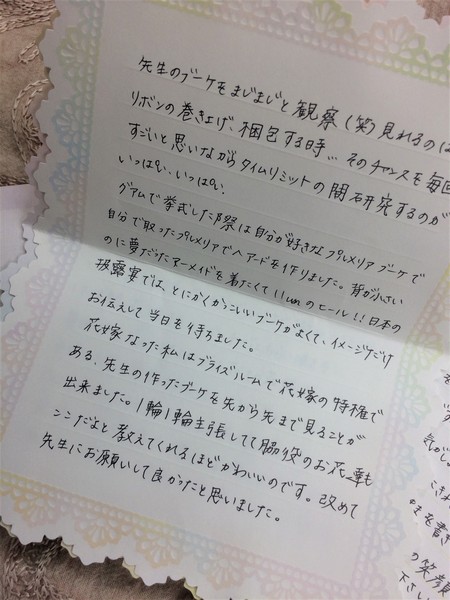 先生のブーケをまじまじと観察(笑)見れるのは
リボンの巻き上げ、梱包する時、、そのチャンスを毎回
すごいと思いながらタイムリミットの間研究するのが
いっぱい、いっぱい。
グアムで挙式した際は自分が好きなプルメリアブーケで
自分で取ったプルメリアでヘアードを作りました。背が小さい
のに夢だったマーメイドを着たくて11cmのヒール!!日本の
披露宴では、とにかくかっこいいブーケがよくて、イメージだけ
お伝えして当日を待ちました。
花嫁なった私はブライズルームで花嫁の特権で
ある、先生の作ったブーケを先から先まで見ることが
出来ました。1輪1輪主張してて脇役のお花達も
ココだよと教えてくれるほどかわいいのです。改めて
先生にお願いして良かったと思いました。
の笑顔
下さい